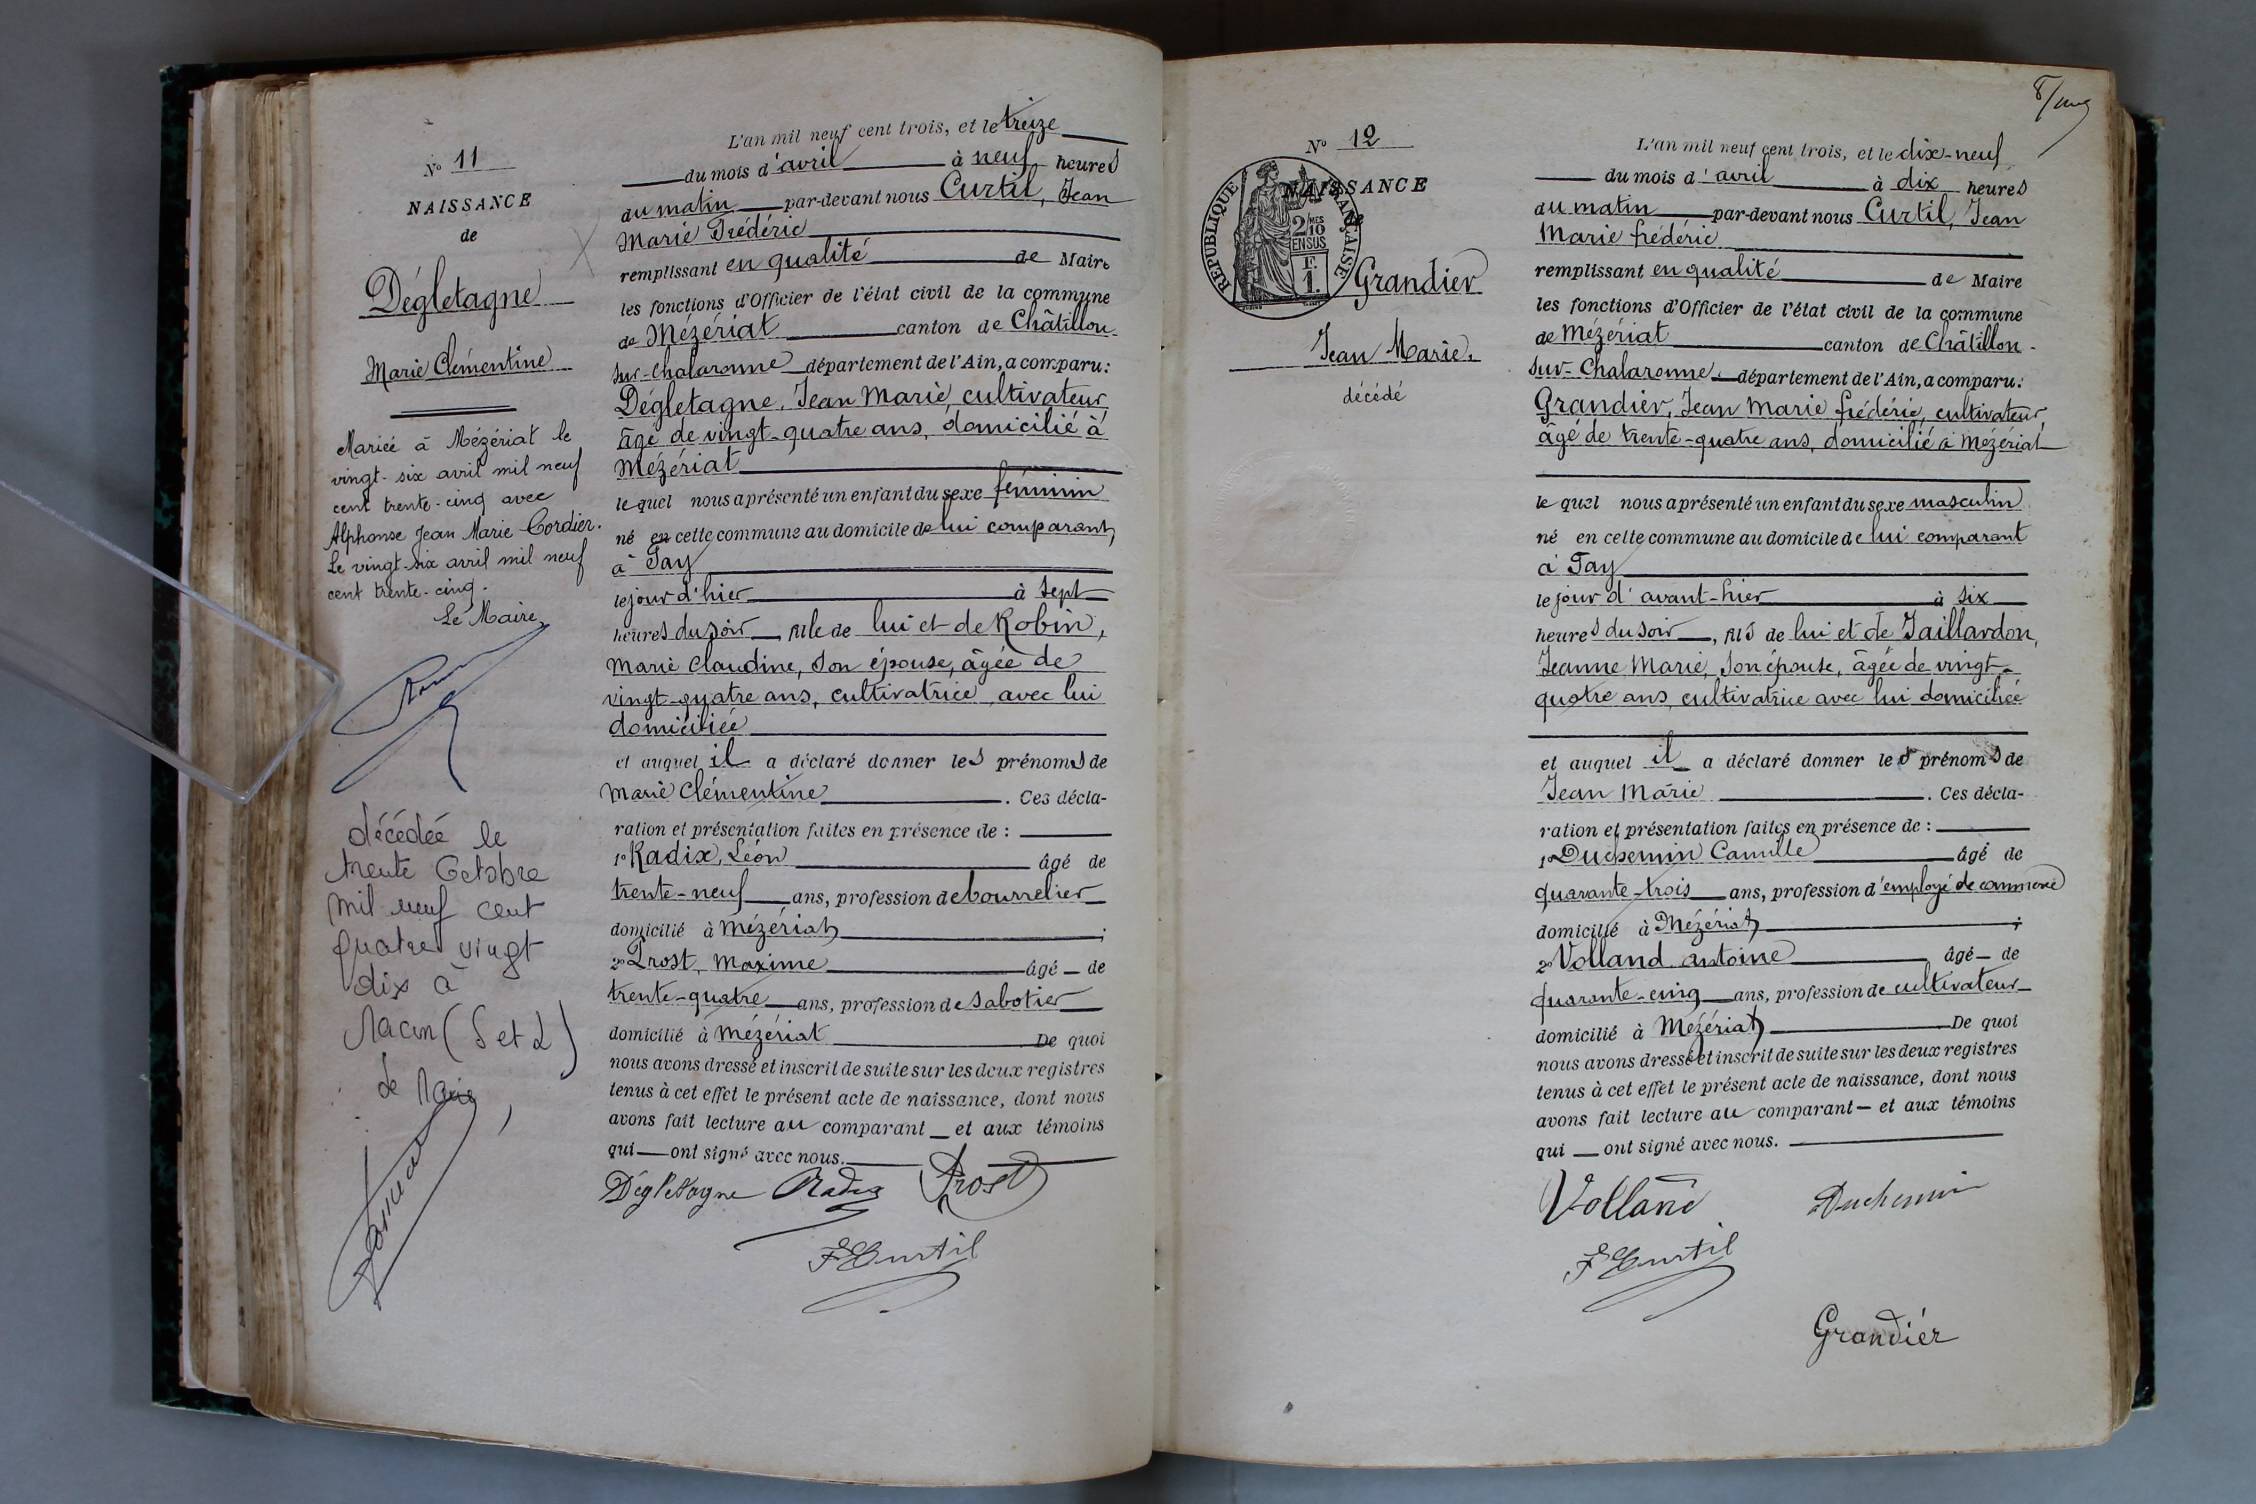 N° 11
NAISSANCE
de
Dégletagne
Marie Clémentine
Mariée à Mézériat le
vingt-six avril mil neuf
cent trente-cinq avec
Alphonse Jean Marie Cordier.
Le vingt-six avril mil neuf
cent trente-cinq.
Le Maire,
décédée le
trente Octobre
mil neuf cent
quatre vingt
dix à
Macon (S et L)
le Maire,
L'an mil neuf cent trois, et le treize
du mois d'avril à neuf heures
du matin par-devant nous Curtil, Jean
Marie Frédéric
remplissant en qualité de Maire
les fonctions d'Officier de l'état civil de la commune
de Mézériat canton de Châtillon-
sur-Chalaronne département de l'Ain, a comparu:
Dégletagne, Jean Marie, cultivateur,
âgé de vingt-quatre ans, domicilié à
Mézériat
lequel nous a présenté un enfant du sexe féminin
né en cette commune au domicile de lui comparant,
à Tay
le jour d'hier à sept
heures du soir, fille de lui et de Robin,
Marie Claudine, son épouse, âgée de
vingt-quatre ans, cultivatrice avec lui
domiciliée
et auquel il a déclaré donner les prénoms de
Marie Clémentine. Ces décla-
ration et présentation faites en présence de :
1° Radix, Léon âgé de
trente-neuf ans, profession de bourrelier
domicilié à Mézériat ;
2° Prost, Maxime âgé de
trente-quatre ans, profession de sabotier
domicilié à Mézériat De quoi
nous avons dressé et inscrit de suite sur les deux registres
tenus à cet effet le présent acte de naissance, dont nous
avons fait lecture au comparant et aux témoins
qui ont signé avec nous.
Dégletagne Radix Prost
F Curtil
8/
N° 12
NAISSANCE
REPUBLIQUE FRANÇAISE
2/10 MES
EN SUS
F.
1.
Grandier
Jean Marie.
décédé
L'an mil neuf cent trois, et le dix-neuf
du mois d'avril à dix heures
du matin par-devant nous Curtil, Jean
Marie frédéric
remplissant en qualité de Maire
les fonctions d'Officier de l'état civil de la commune
de Mézériat canton de Châtillon-
sur-Chalaronne département de l'Ain, a comparu:
Grandier, Jean Marie frédéric, cultivateur,
âgé de trente-quatre ans, domicilié à Mézériat
lequel nous a présenté un enfant du sexe masculin
né en cette commune au domicile de lui comparant
à Tay
le jour d'avant-hier à six
heures du soir, fils de lui et de Taillardon,
Jeanne Marie, son épouse, âgée de vingt-
quatre ans, cultivatrice avec lui domiciliée
et auquel il a déclaré donner les prénoms de
Jean Marie. Ces décla-
ration et présentation faites en présence de :
1° Duchemin Camille âgé de
quarante-trois ans, profession d'employé de commerce
domicilié à Mézériat ;
2° Volland antoine âgé de
quarante-cinq ans, profession de cultivateur
domicilié à Mézériat De quoi
nous avons dressé et inscrit de suite sur les deux registres
tenus à cet effet le présent acte de naissance, dont nous
avons fait lecture au comparant et aux témoins
qui ont signé avec nous.
Volland Duchemin
F Curtil
Grandier